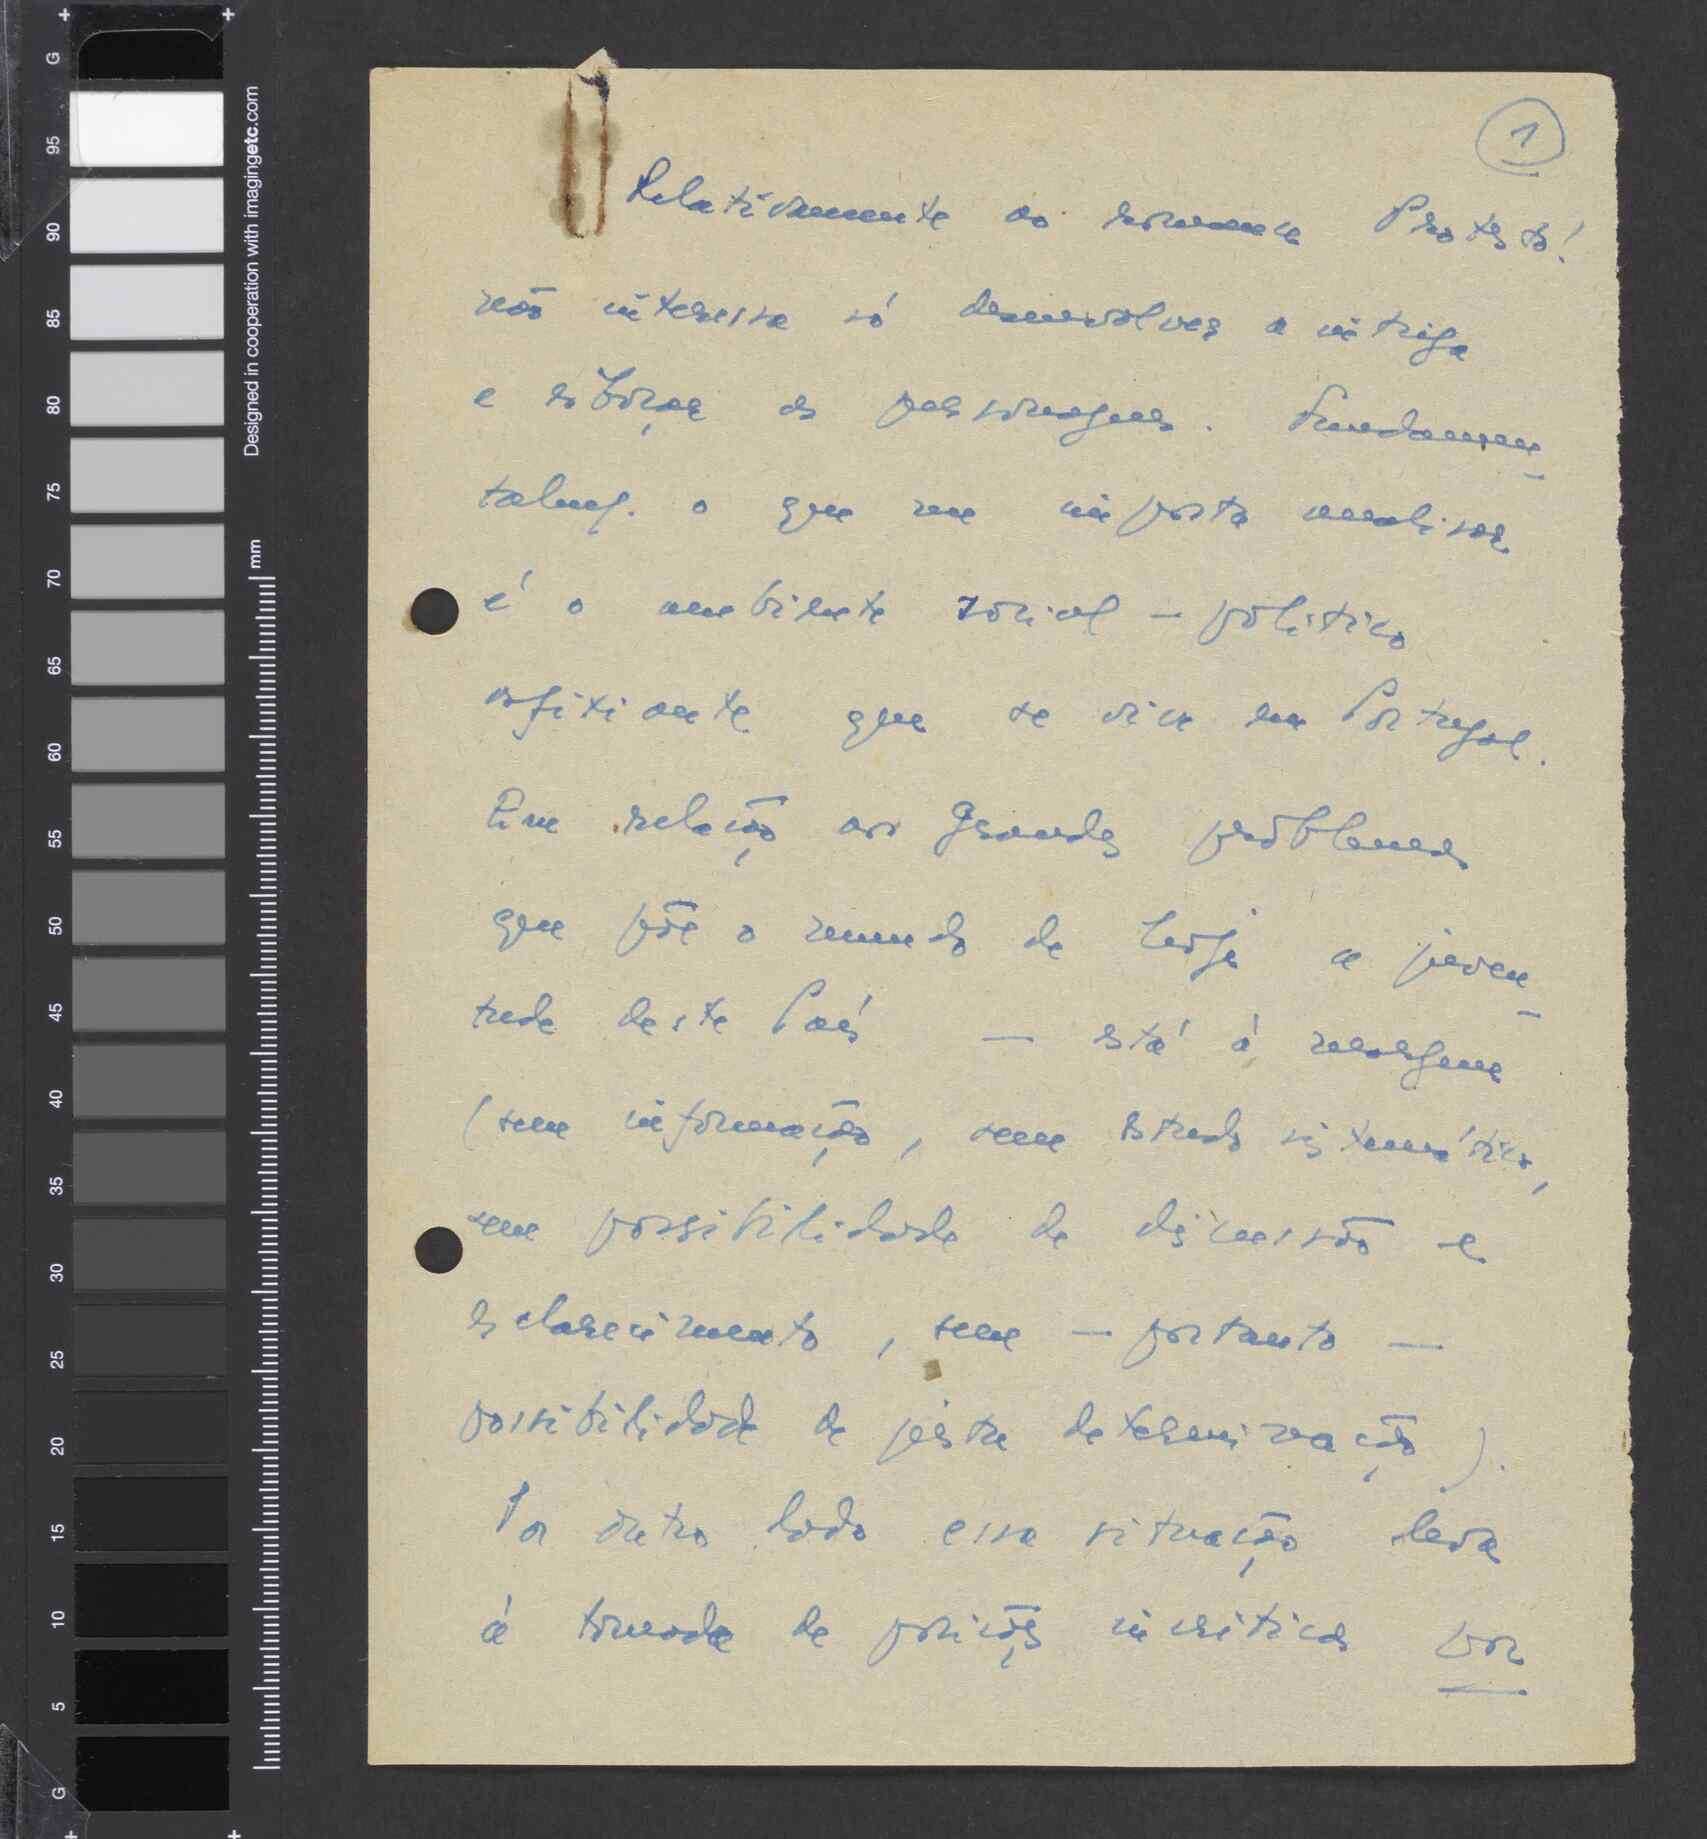 1
Relativamente ao romance Protesto!
não interessa só desenvolver a intriga
e esboçar as personagens. Fundamen-
talmt. o que me importa analisar
é o ambiente social - político
asfixiante que se vive em Portugal.
Em relação aos grandes problemas
que põe o mundo de hoje a juven-
tude deste País — está à margem
(sem informação, sem estudo sistemático,
sem possibilidade de discussão e
esclarecimento, sem — portanto —
possibilidade de justa determinação).
Por outro lado essa situação leva
à tomada de posições incríticas por
G
95
90
85
80
75
70
65
60
55
50
45
40
35
30
25
20
15
10
5
G
Designed in cooperation with imagingetc.com
mm